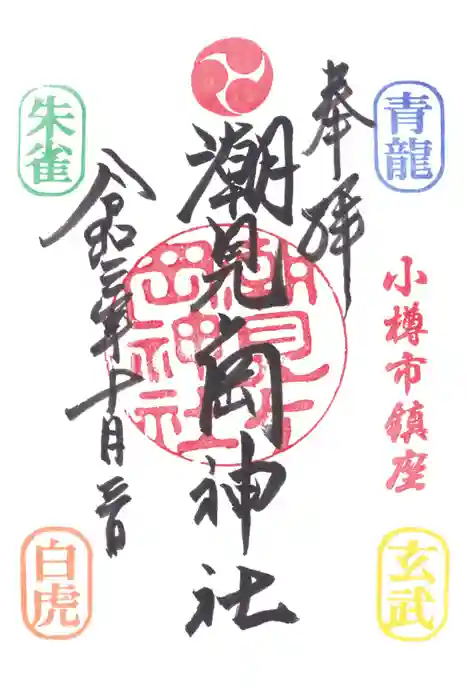 奉拝
潮見岡神社
令和三年十月三日
青龍
朱雀
小樽市鎮座
潮見岡神社
白虎
玄武